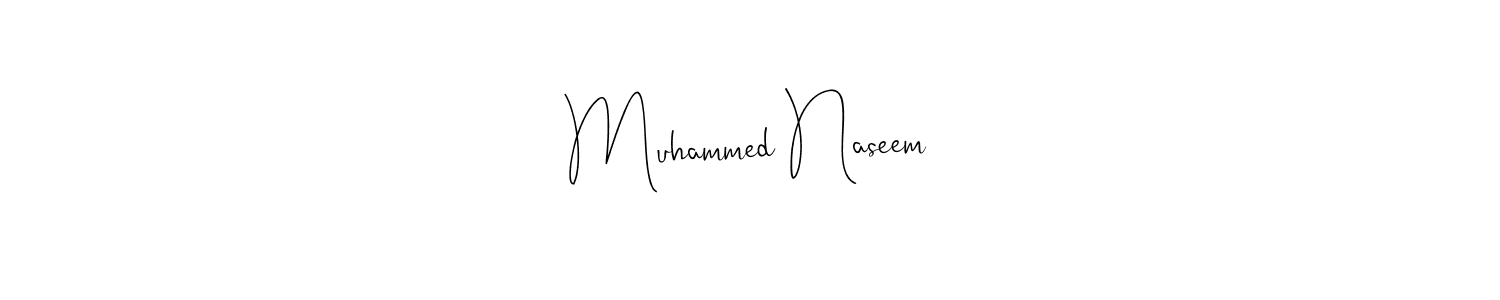 Muhammed Naseem